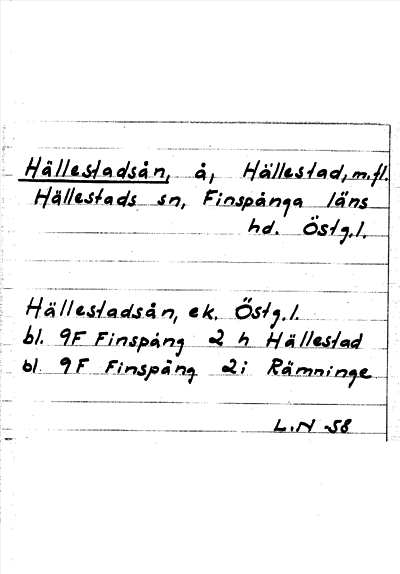 Hällestadsån, å, Hällestad, m.fl.
Hällestads sn, Finspånga läns
hd. Östg.l.
Hällestadsån, ek. Östg.l.
bl. 9F Finspång 2 h Hällestad
bl 9F Finspång 2i Rämninge
L.N 58